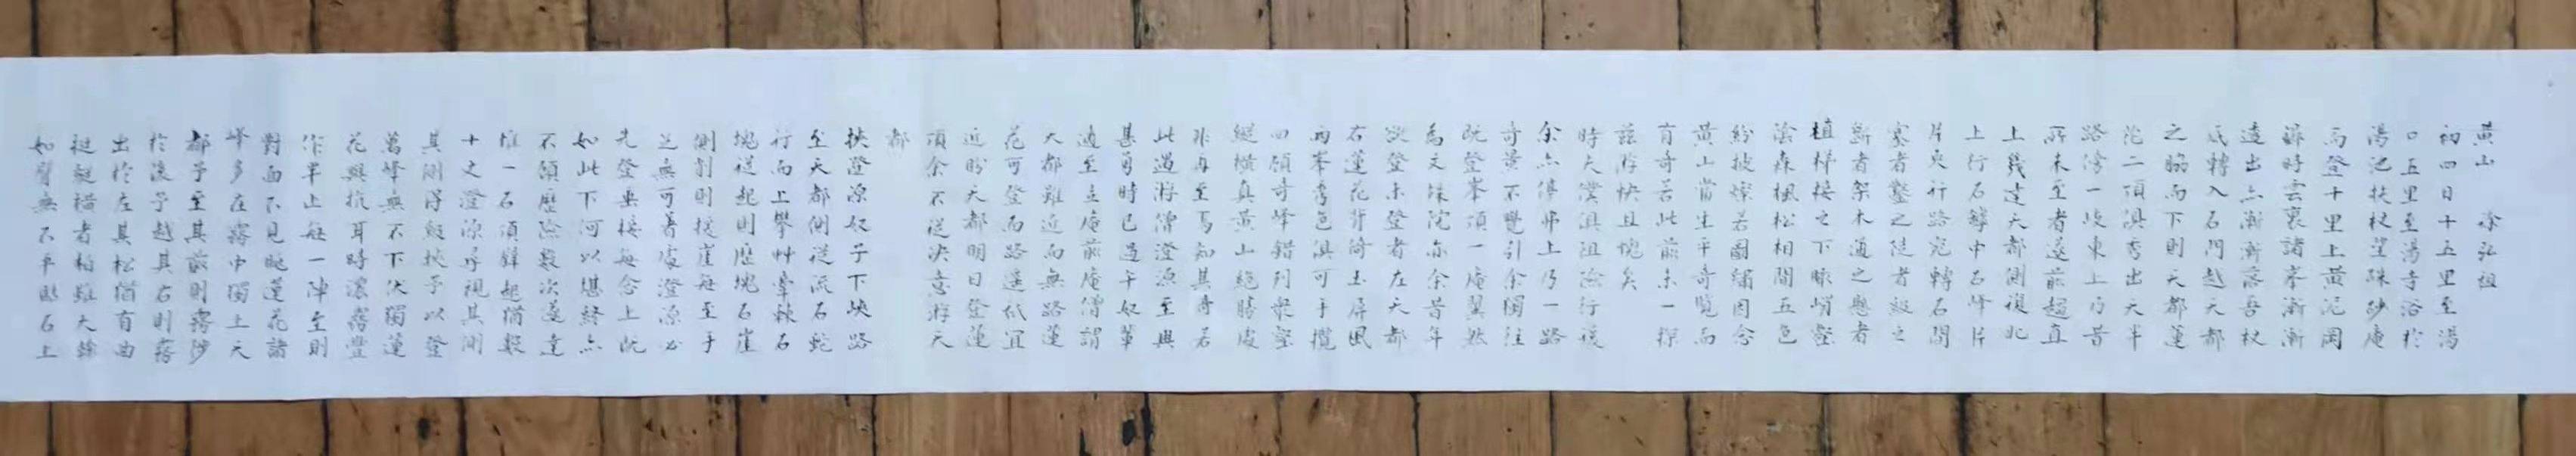 黄山 徐弘祖
初四日十五里至湯
口五里至湯寺浴於
湯池扶杖望硃砂庵
而登十里上黄泥岡
向時雲裏諸峯漸漸
透出亦漸漸落吾杖
底轉入石門越天都
之脇而下則天都蓮
花二頂俱秀出天半
路旁一岐東上乃昔
所未至者遂前趨直
上幾達天都側復北
上行石罅中石峰片
片夾行路宛轉石間
塞者鑿之陡者級之
斷者架木通之懸者
植梯接之下瞰峭壑
陰森楓松相間五色
紛披燦若圖繡因念
黄山當生平奇覽而
有奇若此前未一探
兹游快且愧矣
時夫僕俱阻險行後
余亦停弗上乃一路
奇景不覺引余獨往
既登峯頭一庵翼然
為文殊院亦余昔年
欲登未登者左天都
右蓮花背倚玉屏風
兩峯秀色俱可手攬
四顧奇峰錯列衆壑
縱横真黄山絶勝處
非再至焉知其奇若
此遇游僧澄源至興
甚勇時已過午奴輩
適至立庵前庵僧謂
天都雖近而無路蓮
花可登而路遥祇宜
近盼天都明日登蓮
頂余不從決意游天
都
挾澄源奴子下峽路
至天都側從流石蛇
行而上攀艸牽棘石
塊叢起則歷塊石崖
側削則援崖每至手
足無可着處澄源必
先登垂接每念上既
如此下何以堪終亦
不顧歷險數次遂達
惟一石頂鋒起猶數
十丈澄源尋視其側
其側得級挾予以登
萬峰無不下伏獨蓮
花與抗耳時濃霧豐
作半止每一陣至則
對面不見眺蓮花諸
峰多在霧中獨上天
都予至其前則霧涉
於後予越其右則霧
出於左其松猶有曲
挺縱横者柏雖大幹
如臂無不平貼石上